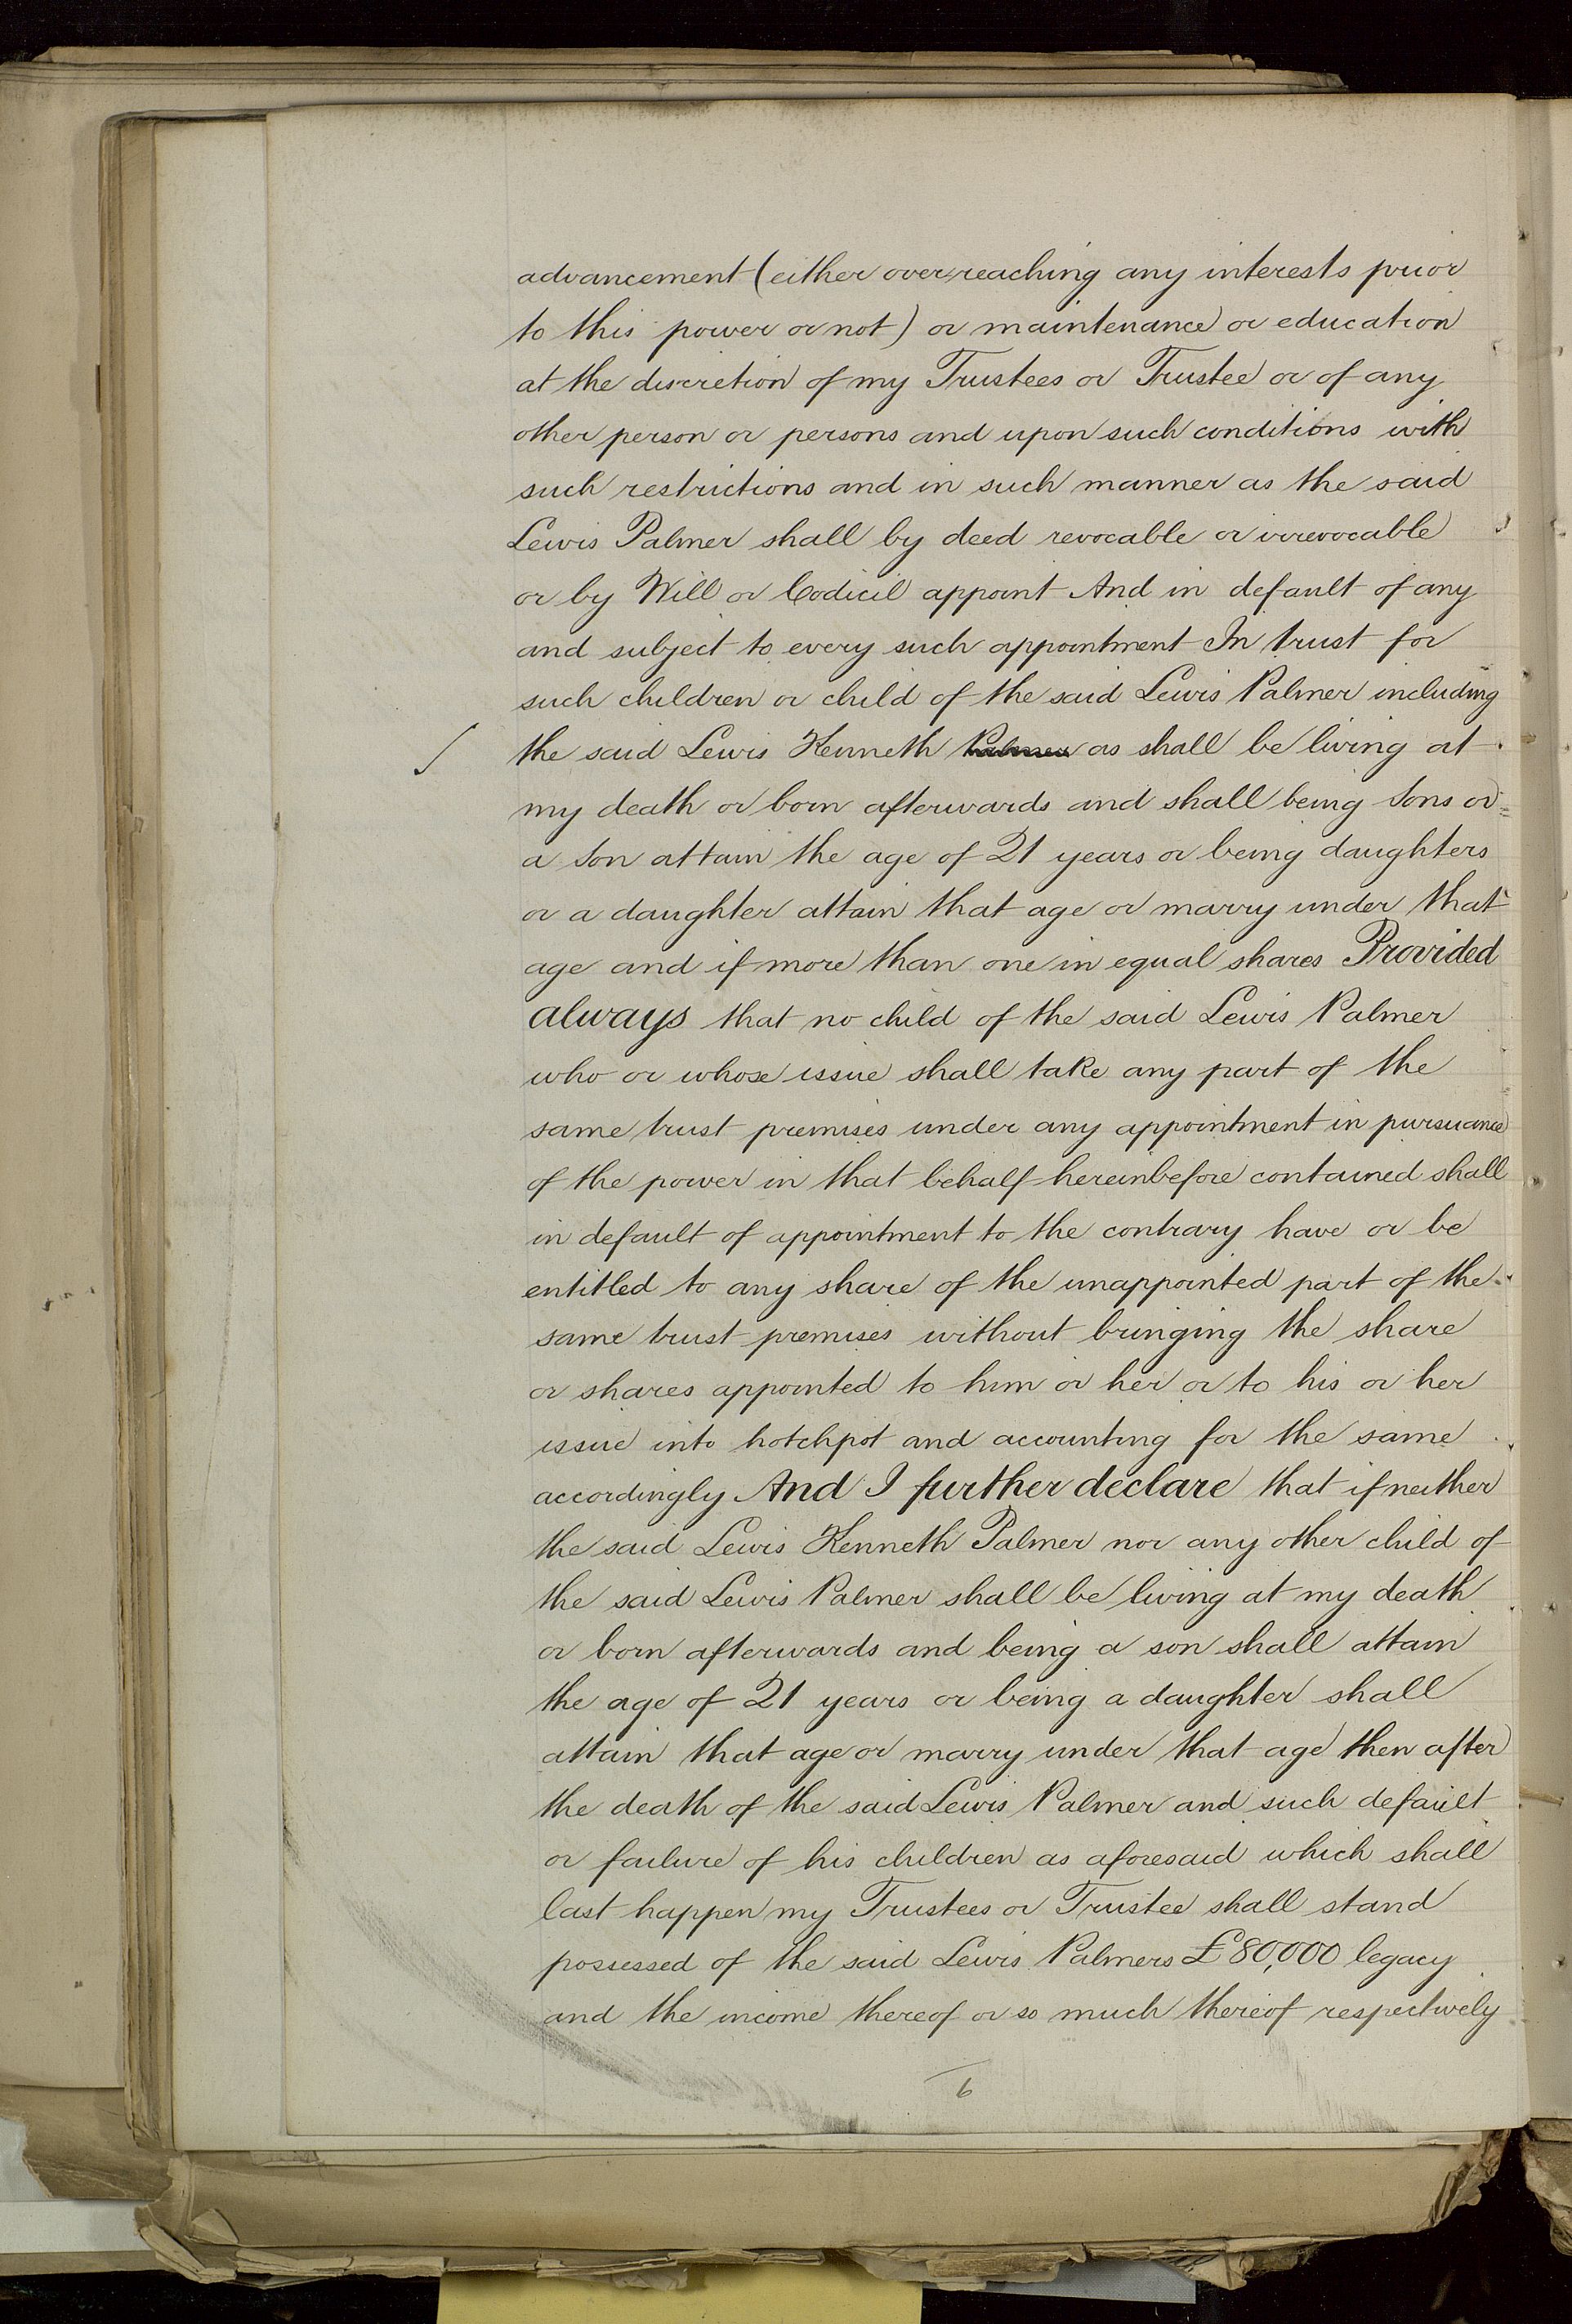 advancement (either overreaching any interests prior
to this power or not) or maintenance or education
at the discretion of my Trustees or Trustee or of any
other person or persons and upon such conditions with
such restrictions and in such manner as the said
Lewis Palmer shall by deed revocable or irrevocable
or by Will or Codicil appoint And in default of any
and subject to every such appointment In trust for
such children or child of the said Lewis Palmer including
the said Lewis Kenneth Palmer as shall be living at
my death or born afterwards and shall being Sons or
a Son attain the age of 21 years or being daughters
or a daughter attain that age or marry under that
age and if more than one in equal shares Provided
always that no child of the said Lewis Palmer
who or whose issue shall take any part of the
same trust premises under any appointment in pursuance
of the power in that behalf hereinbefore contained shall
in default of appointment to the contrary have or be
entitled to any share of the unappointed part of the
same trust premises without bringing the share
or shares appointed to him or her or to his or her
issue into hotchpot and accounting for the same
accordingly And I further declare that if neither
the said Lewis Kenneth Palmer nor any other child of
the said Lewis Palmer shall be living at my death
or born afterwards and being a son shall attain
the age of 21 years or being a daughter shall
attain that age or marry under that age then after
the death of the said Lewis Palmer and such default
or failure of his children as aforesaid which shall
last happen my Trustees or Trustee shall stand
possessed of the said Lewis Palmers £80,000 legacy
and the income thereof or so much thereof respectively
6